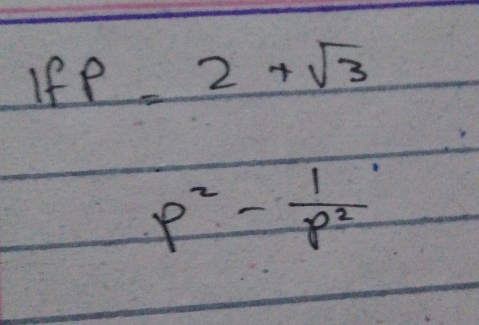 If P = 2 + √3
p² - 1/p²